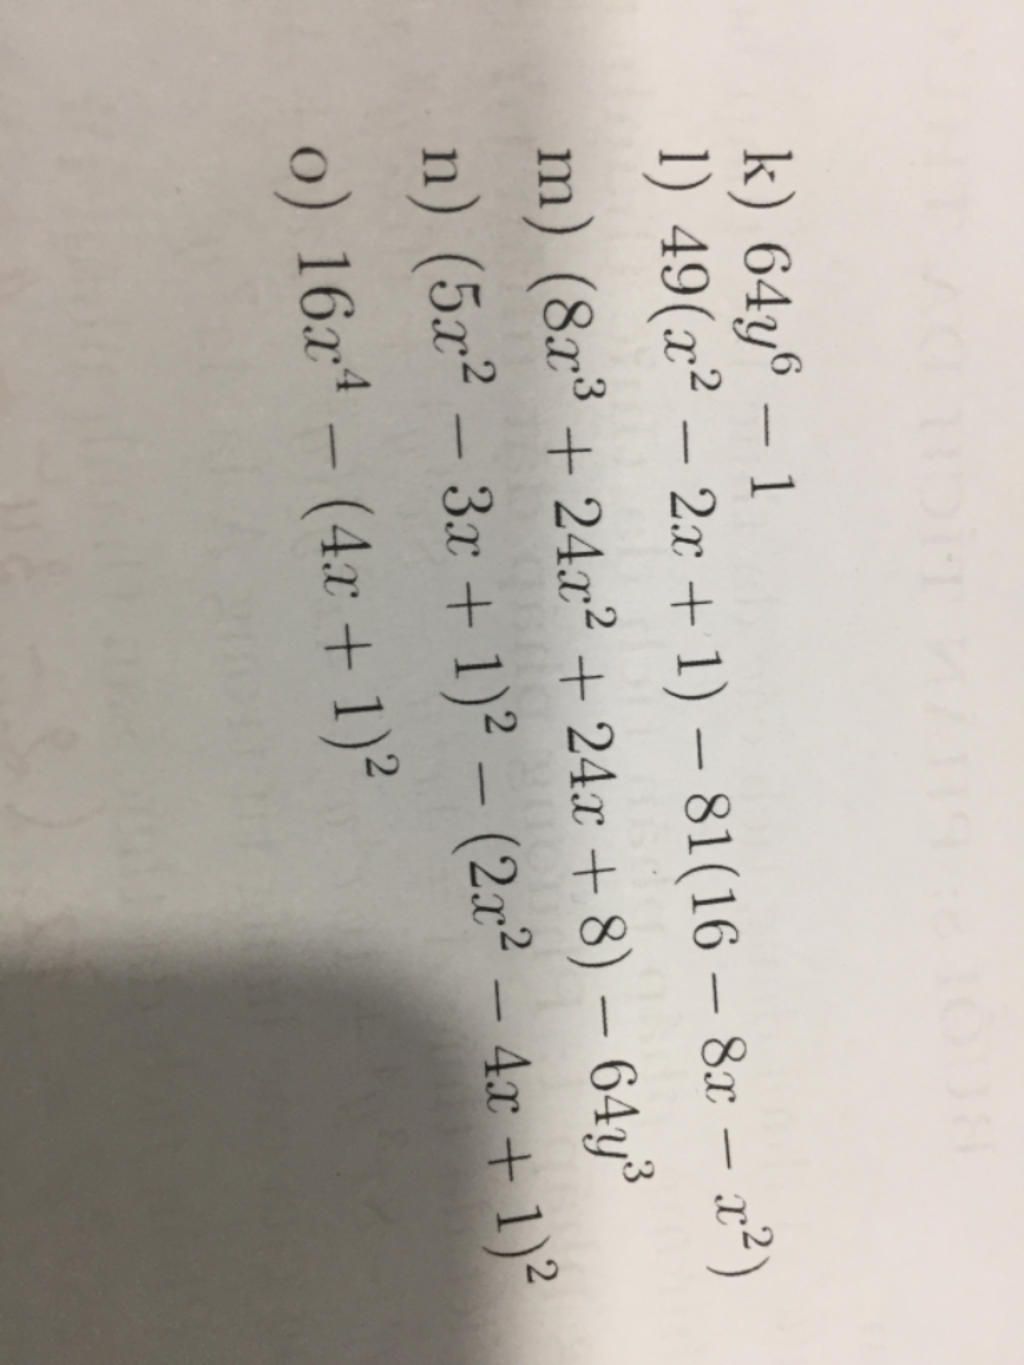 k) 64y⁶ − 1
l) 49(x² − 2x + 1) − 81(16 − 8x − x²)
m) (8x³ + 24x² + 24x + 8) − 64y³
n) (5x² − 3x + 1)² − (2x² − 4x + 1)²
o) 16x⁴ − (4x + 1)²